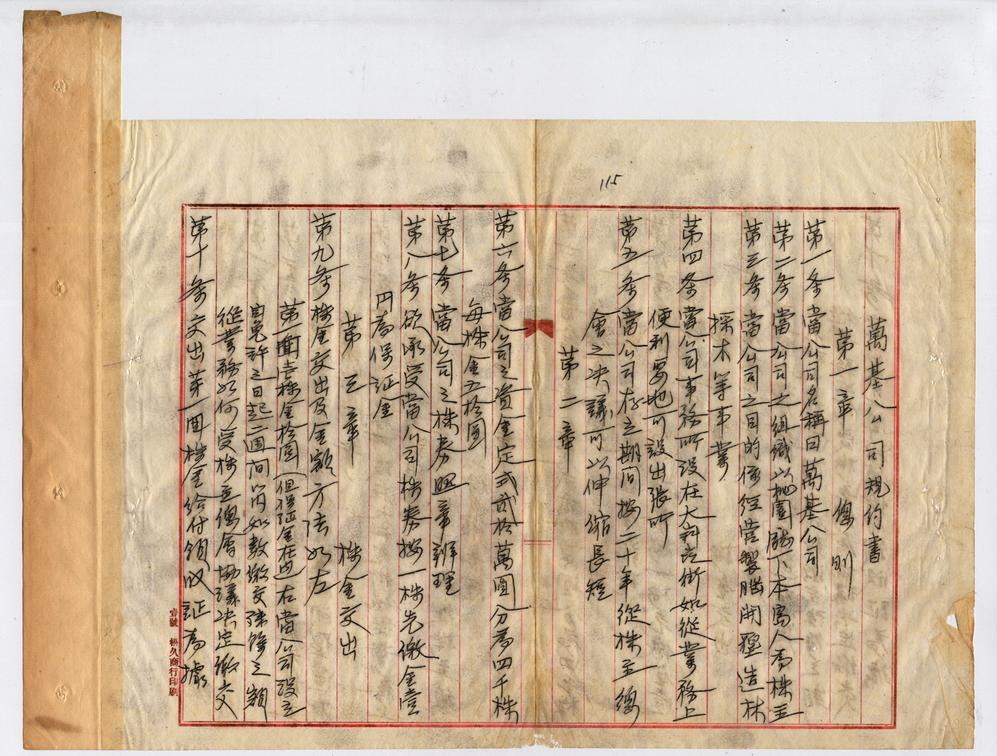 115
萬基公司規約書
第一章 總則
第一条 當公司名稱曰萬基公司
第二条 當公司之組織以桃園廳下本島人為株主
第三条 當公司之目的係經營製腦開墾造林
採木等事業
第四条 當公司事務所設在大科崁街如從業務上
便利要也可設出張所
第五条 當公司存立期间按二十年從株主總
會之决議可以伸縮長短
第二章
第六条 當公司之資金定式貳拾萬圓分為四千株
每株金五拾圓
第七条 當公司之株券照章辦理
第八条 欲承受當公司株券按一株先繳金壹
円為保証金
第三章 株金交出
第九条 株金交出及金額方法如左
第一回壹株金拾圓(但保証金在内)右當公司設立
自免許之日起二週间以内如數繳交殘餘之額
從業務如何受株主總會協議决定繳交
第十条 交出第一回株金給付領收証為據
壹號 林久商行印刷